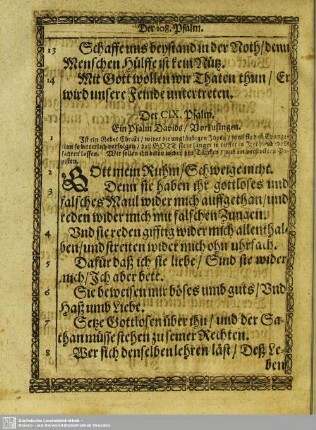 Der 108. Psalm.
13 Schaffe uns beystand in der Noth/denn
Menschen Hülffe ist kein Nütz.
14 Mit Gott wollen wir Thaten thun/ Er
wird unsere Feinde untertreten.
Der CIX. Psalm.
Ein Psalm Davids/ Vorzusingen.
1 Ist ein Gebet Christi/ wider die
GOTT
fahren lassen. Wir sollen
1 GOtt mein Ruhm/ Schweige nicht.
2 Denn sie haben ihr gottloses und
falsches Maul wider mich auffgethan/und
reden wider mich mit falschen Zungen.
3 Vnd sie reden gifftig wider mich allenthal-
ben/und streiten wider mich ohn uhrsach.
4 Dafür daß ich sie liebe/ Sind sie wider
mich/ Ich aber bete.
5 Sie beweisen mir böses umb guts/ Vnd
Haß umb Liebe.
6 Setze Gottlosen über ihn/ und der Sa-
than müsse stehen zu seiner Rechten.
7 Wer sich denselben lehren läst/ Deß Le-
8 ben